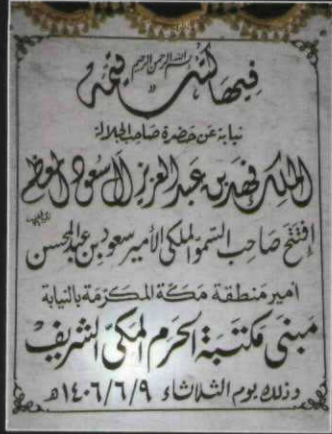 بسم الله الرحمن الرحيم
فيها كتب قيمة
نيابة عن حضرة صاحب الجلالة
الملك فهد بن عبد العزيز آل سعود المعظم
إفتتح صاحب السمو الملكي الأمير سعود بن عبد المحسن
امير منطقة مكة المكرمة بالنيابة
مبنى مكتبة الحرم المكي الشريف
وذلك يوم الثلاثاء ١٤٠٦/٦/٩ هـ